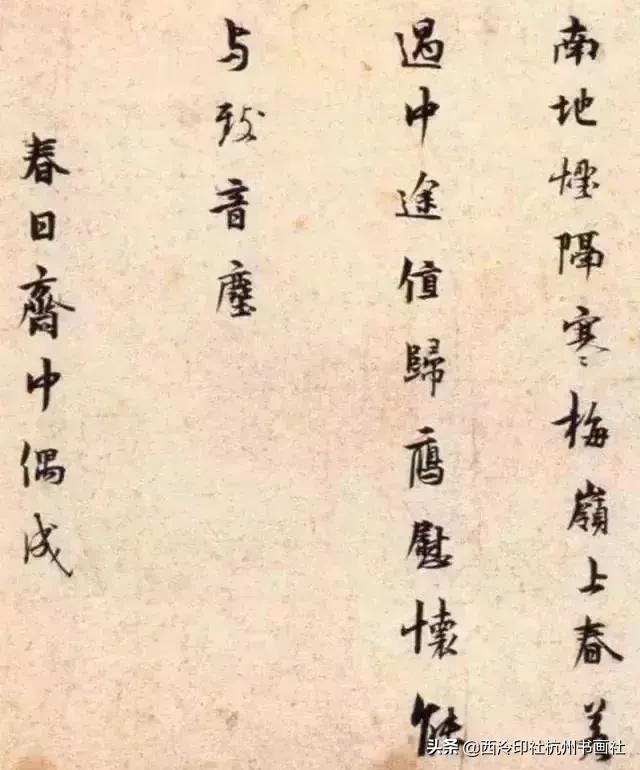 南地煙隔寒梅嶺上春
遇中途值歸鴈慰懷能
与致音塵
春日齋中偶成
头条 @西泠印社杭州书画社